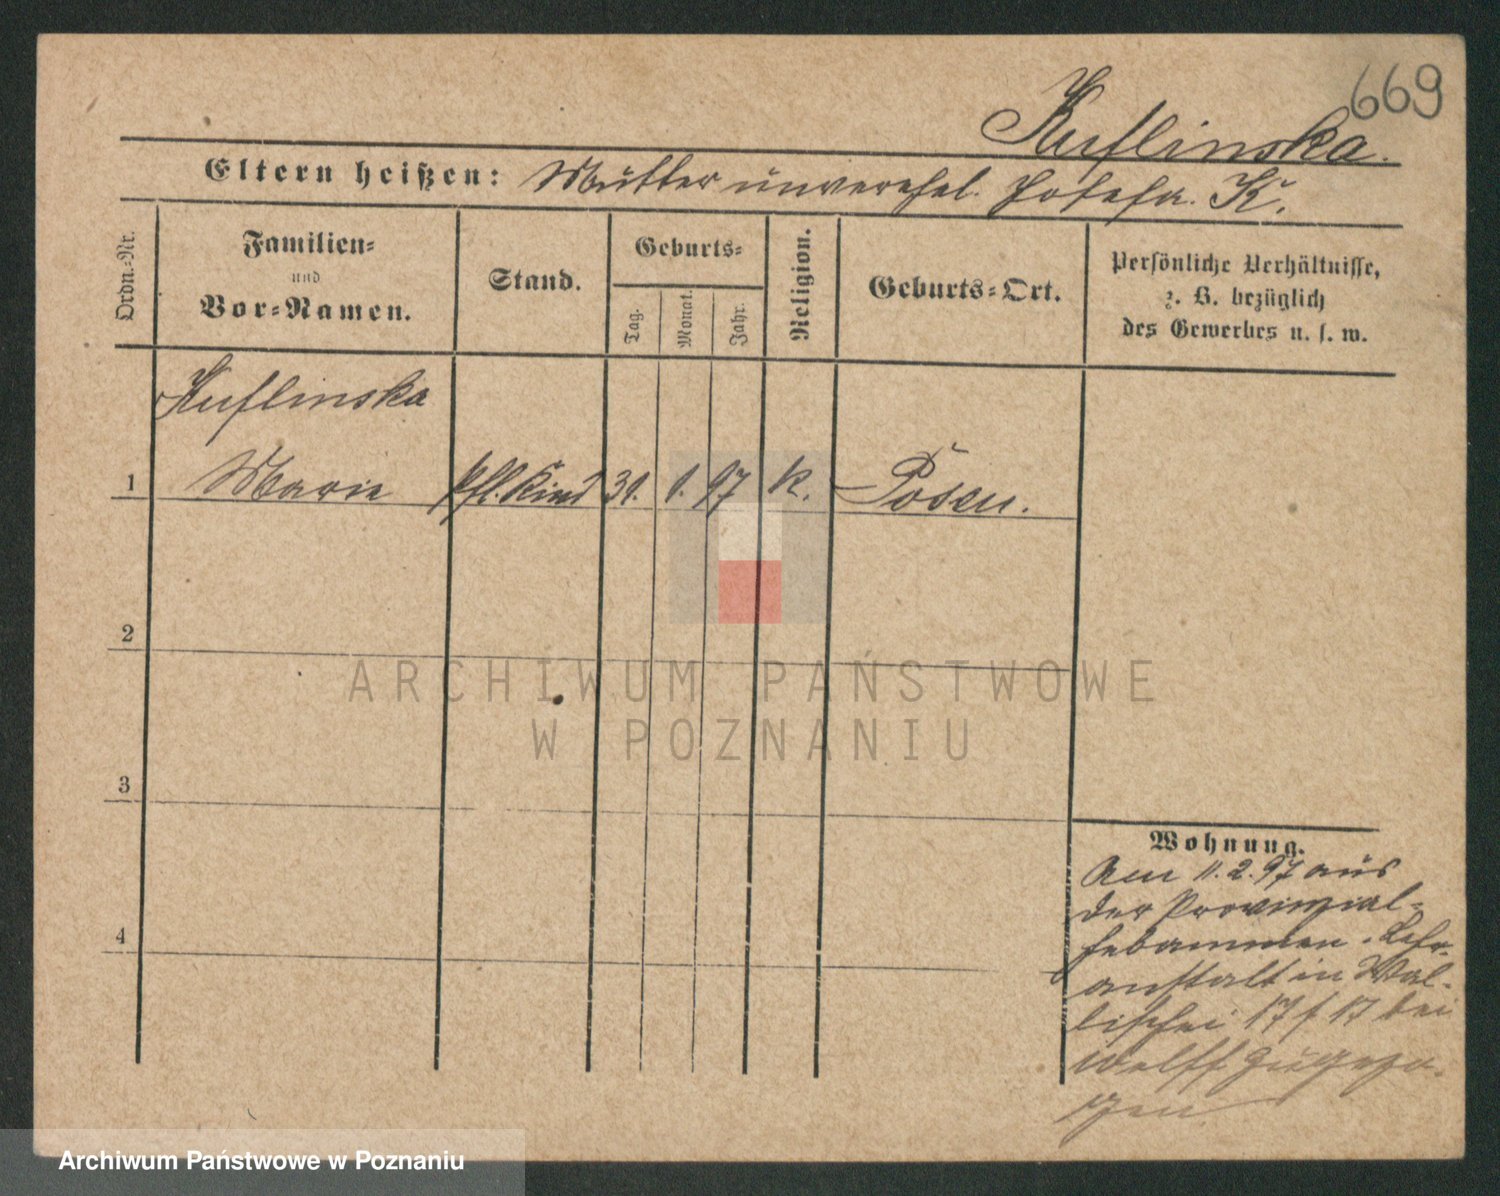 669
Kuflinska.
Eltern heißen: Mutter unverehel. Josefa. K.
Ordn.=Nr.
Familien=
und
Vor=Namen.
Stand.
Geburts=
Tag.
Monat.
Jahr.
Religion.
Geburts=Ort.
Persönliche Verhältnisse,
z. B. bezüglich
des Gewerbes u. s. w.
Kuflinska
1 Marie Pfl. Kind 31. 1. 97 K. Posen.
2
3
4
Wohnung.
Am 11.2.97 aus
der Provinzial-
Hebammen-Lehr-
anstalt in Wal-
lischei 17/ bei
Wolff zugezo-
gen
ARCHIWUM PAŃSTWOWE
W POZNANIU
Archiwum Państwowe w Poznaniu